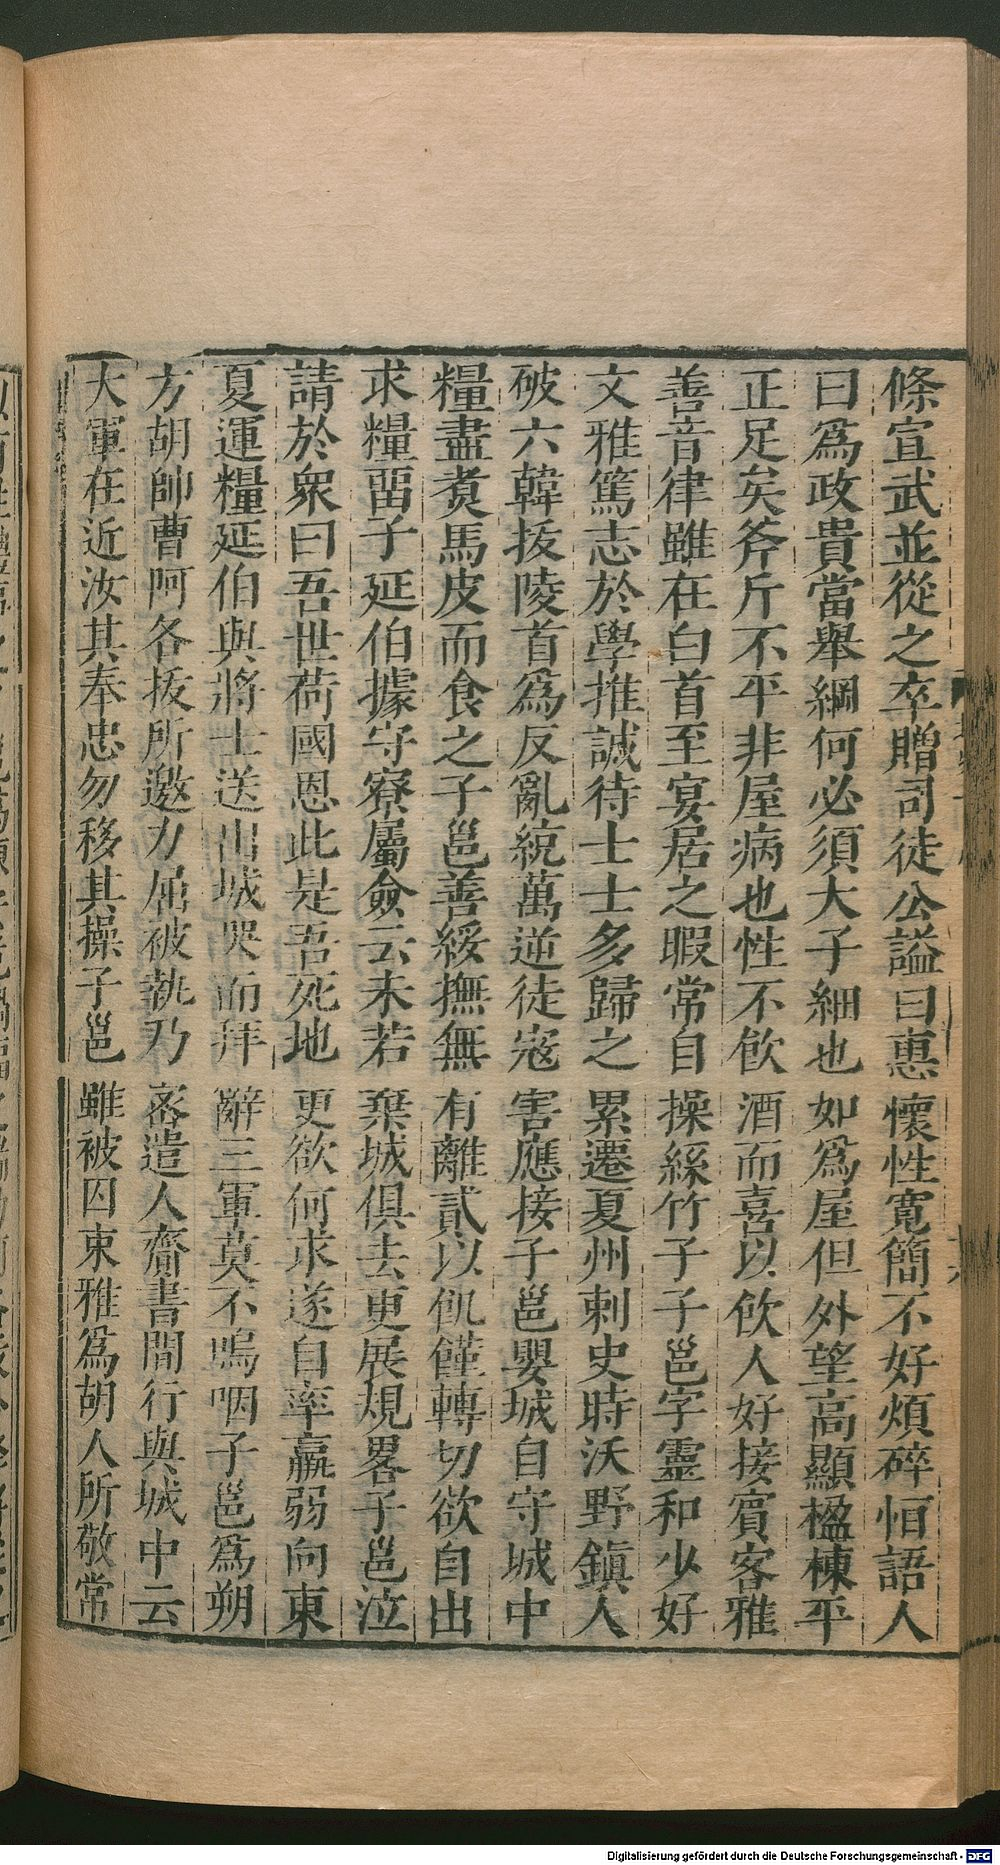 條宣武並從之卒贈司徒公謚曰惠懷性寛簡不好煩碎恒語人
曰爲政貴當舉綱何必須大子細也如爲屋但外望高顯楹棟平
正足矣斧斤不平非屋病也性不飲酒而喜以飲人好接賓客雅
善音律雖在白首至宴居之暇常自操絲竹子子邕字靈和少好
文雅篤志於學推誠待士士多歸之累遷夏州刺史時沃野鎮人
破六韓拔陵首爲反亂統萬逆徒寇害應接子邕嬰城自守城中
糧盡煑馬皮而食之子邕善綏撫無有離貳以飢饉轉切欲自出
求糧畱子延伯據守寮屬僉云未若棄城俱去更展規畧子邕泣
請於衆曰吾世荷國恩此是吾死地更欲何求遂自率羸弱向東
夏運糧延伯與將士送出城哭而拜辭三軍莫不嗚咽子邕爲朔
方胡帥曹阿各拔所邀力屈被執乃宻遣人齎書間行與城中云
大軍在近汝其奉忠勿移其操子邕雖被囚束雅爲胡人所敬常
Digitalisierung gefördert durch die Deutsche Forschungsgemeinschaft - DFG